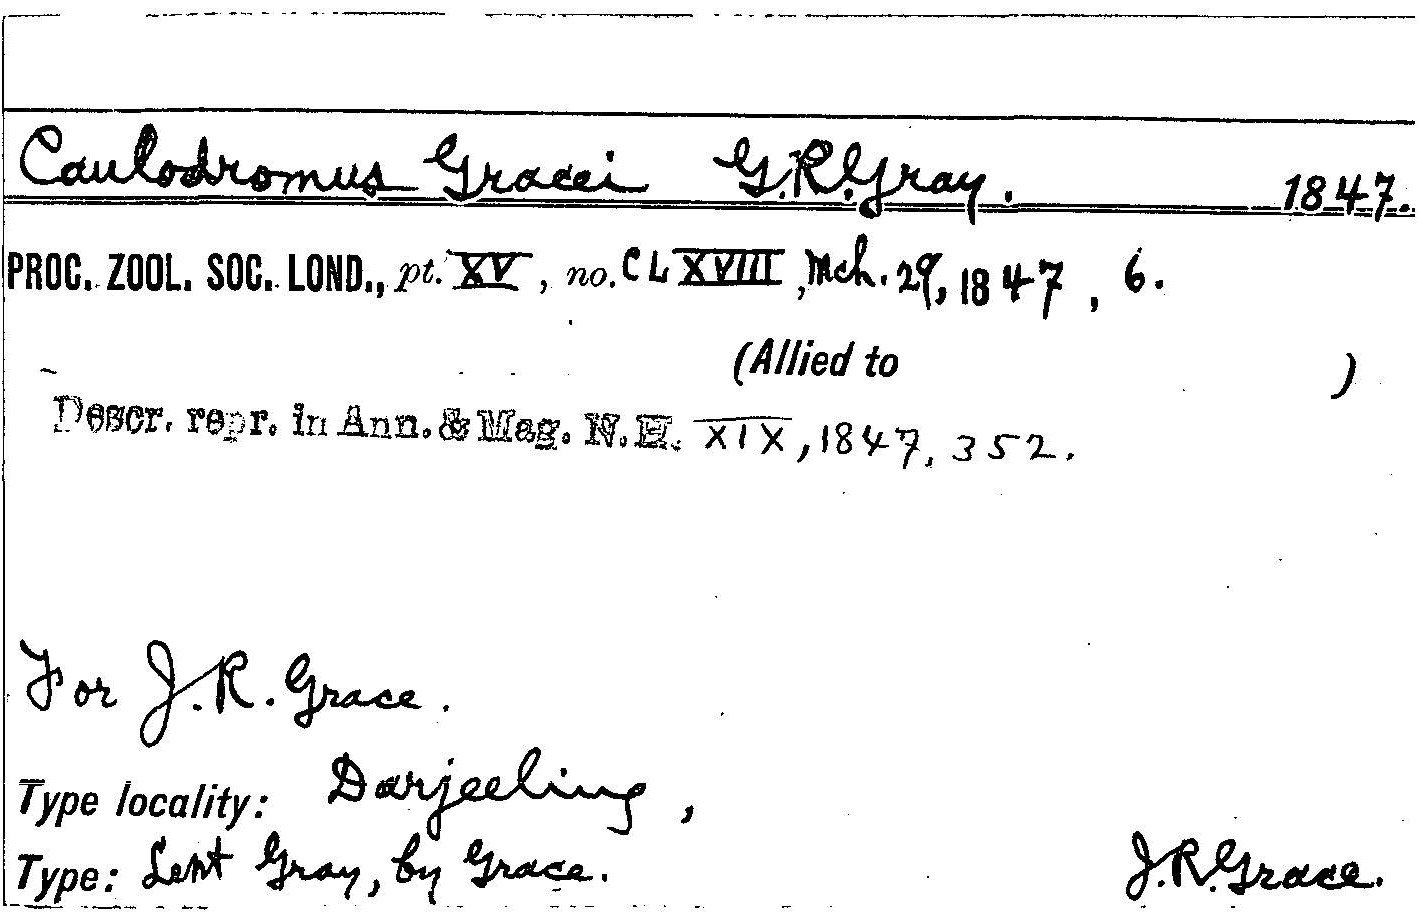 Caulodromus Gracei G.R.Gray. 1847.
PROC. ZOOL. SOC. LOND., pt. XV, no. CLXVIII, Mch. 29, 1847, 6.
(Allied to )
Descr. repr. in Ann. & Mag. N.H. XIX, 1847, 352.
For J.R. Grace.
Type locality: Darjeeling,
Type: Sent Gray, by Grace. J.R.Grace.